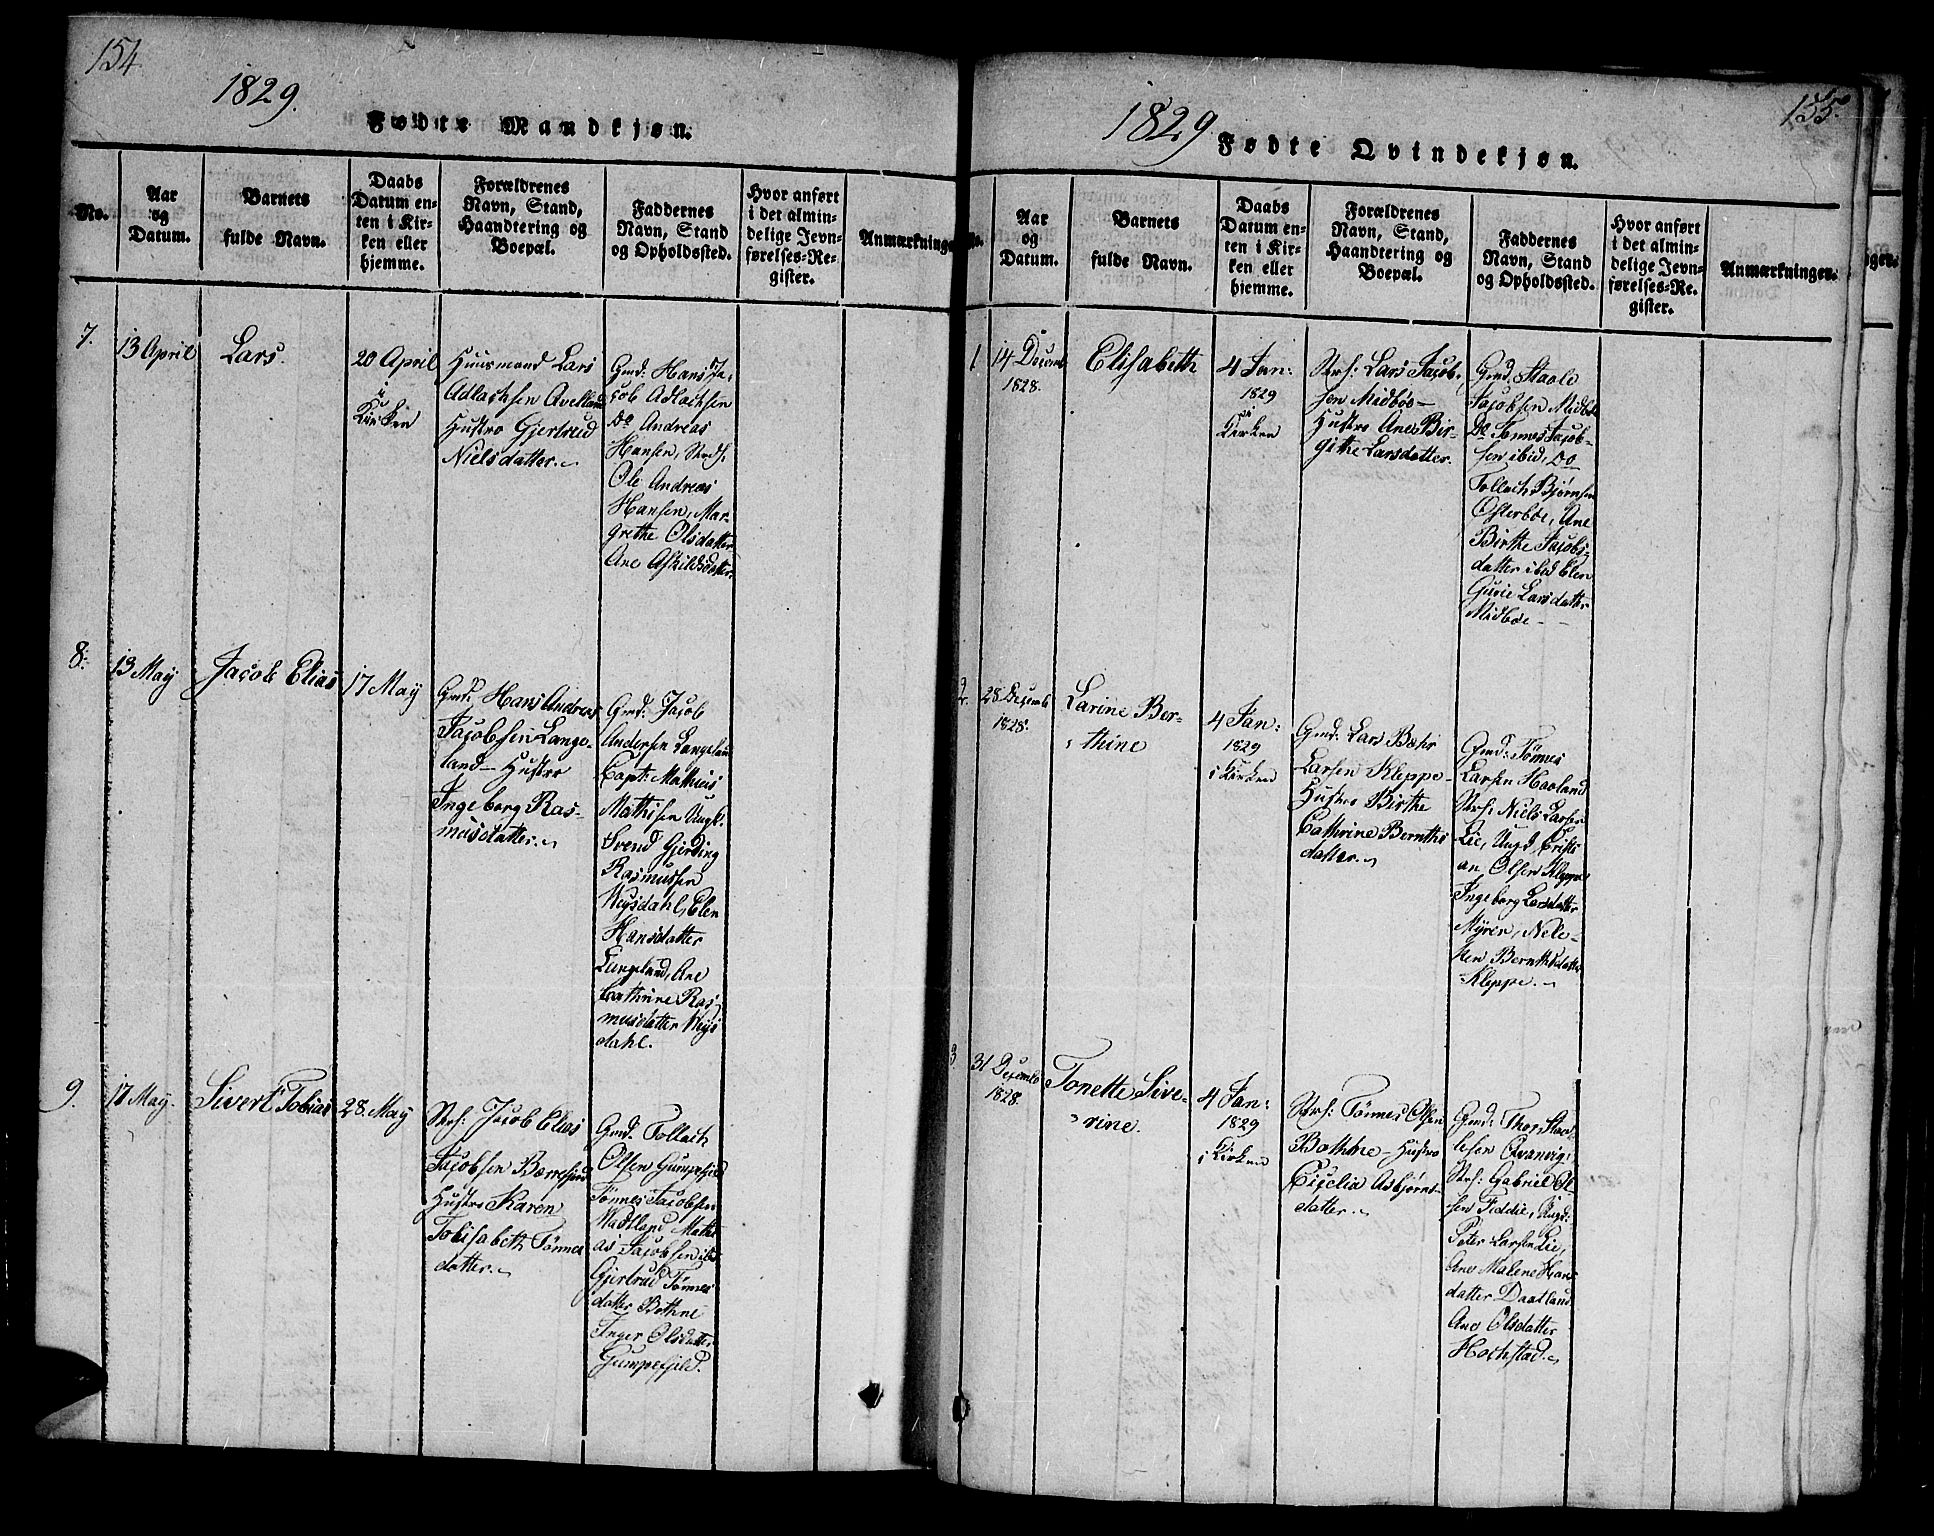 154
1829.
Fødte Mandkjøn.
No.
Aar
og
Datum.
Barnets
fulde Navn.
Daabs
Datum en-
ten i Kir-
ken eller
hjemme.
Forældrenes
Navn, Stand,
Haandtering og
Boepæl.
Faddernes
Navn, Stand
og Opholdssted.
Hvor anført
i det almin-
delige Jevn-
førelses-Re-
gister.
Anmærkninge
7.
13 April
Lars.
20 April
i
Kirken
Huusmand Lars
Adlachsen Avelland
Hustro Gjertrud
Nielsdatter.
Gmd: Hans Ja-
cob Adlachsen
Do Andreas
Hansen, Strds:
Ole Andreas
Hansen, Mar-
grethe Olsdatter
Ane Askildsdatter.
8.
13 May
Jacob Elias
17 May
Gmd: Hans Andreas
Jacobsen Lange-
land - Hustro
Ingeborg Ras-
musdatter.
Gmd: Jacob
Andersen Langeland
Capt: Mathias
Mathisen Ungk:
Svend Gjerding
Rasmussen
Nysdahl, Elen
Hansdatter
Langeland, Ane
Cathrine Ras-
musdatter Nys
dahl.
9.
17 May.
Sivert Tobias
28 May
Strs: Jacob Elias
Jacobsen
Hustro Karen
Tobisabeth Tønnes
datter.
Gmd. Tollach
Olsen Gumpefjeld
Tønnes Jacobsen
Watland Mathi
as Jacobsen ibd
Gjertrud Tønnes
datter Bothne
Inger Olsdatter
Gumpefjeld.
155.
1829
Fødte Qvindekjøn.
No.
Aar
og
Datum.
Barnets
fulde Navn.
Daabs
Datum en-
ten i Kir-
ken eller
hjemme.
Forældrenes
Navn, Stand,
Haandtering og
Boepæl.
Faddernes
Navn, Stand
og Opholdssted.
Hvor anført
i det almin-
delige Jevn-
førelses-Re-
gister.
Anmærkninger.
1
14 Decemb
1828.
Elisabeth
4 Jan:
1829
i
Kirken
Strs: Lars Jacob-
sen Midbøe -
Hustro Ane Bir-
githe Larsdatter.
Gmd. Staale
Jacobsen Midbøe
Do Tønnes Jacob-
sen ibid, Do
Tollach Bjørnsen
Osterbøe, Ane
Birthe Jacobs-
datter ibid Elen
Gurie Larsdatter
Midbøe -
2.
28 Decemb
1828.
Larine Ber-
thine
4 Jan:
1829
i Kirken
Gmd: Lars Bøhr
Larsen Kleppe -
Hustro Birthe
Cathrine Bernths
datter.
Gmd: Tønnes
Larsen Haaland
Strs: Niels Larsen
Lie, Ungd, Cristi
an Olsen Kleppe
Ingeborg Larsdatter
Myren, Nele-
sten Bernthsdatter
Kleppe.
3.
31 Decemb
1828.
Tonette Sive-
rine.
4 Jan:
1829
i Kirken
Strs: Tønnes Olsen
Bothne - Hustro
Cicelia Asbjørns-
datter.
Gmd: Thor Staa-
lesen Qvanvig,
Strs: Gabriel Ol-
sen Feddie, Ungd:
Peter Larsen Lie,
Ane Malene Hans
datter Daatland
Ane Olsdatter
Hochstad.